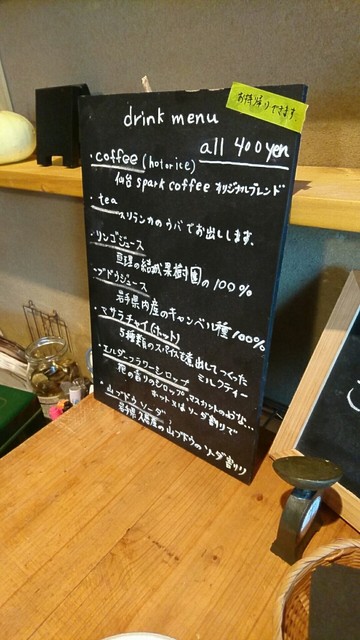 お持帰りできます。
drink menu
all 400 yen
・coffee (hot or ice)
仙台 spark coffee オリジナルブレンド
・tea
スリランカのウバでお出しします。
・リンゴジュース
亘理の結城果樹園の100%
・ブドウジュース
岩手県内産のキャンベル種100%
・マサラチャイ(hot)
5種類のスパイスを煮出してつくったミルクティー
・エルダーフラワーシロップ
花の香りのシロップ、マスカットのような…
ホット又はソーダ割りで
・山ブドウソーダ
岩手県久慈産の山ブドウのソーダ割り